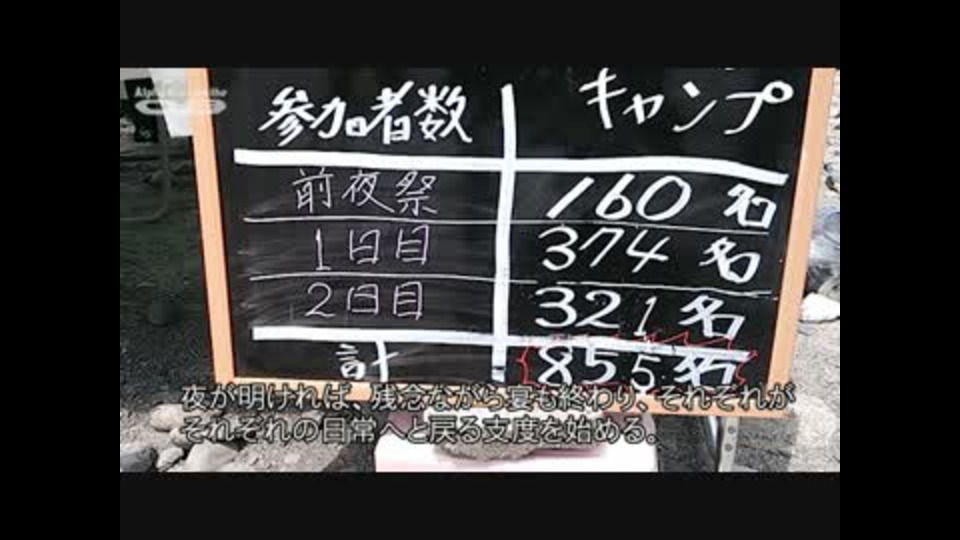 参加者数 キャンプ
前夜祭 160名
1日目 374名
2日目 321名
計 855名
夜が明ければ、残念ながら宴も終わり、それぞれが
それぞれの日常へと戻る支度を始める。